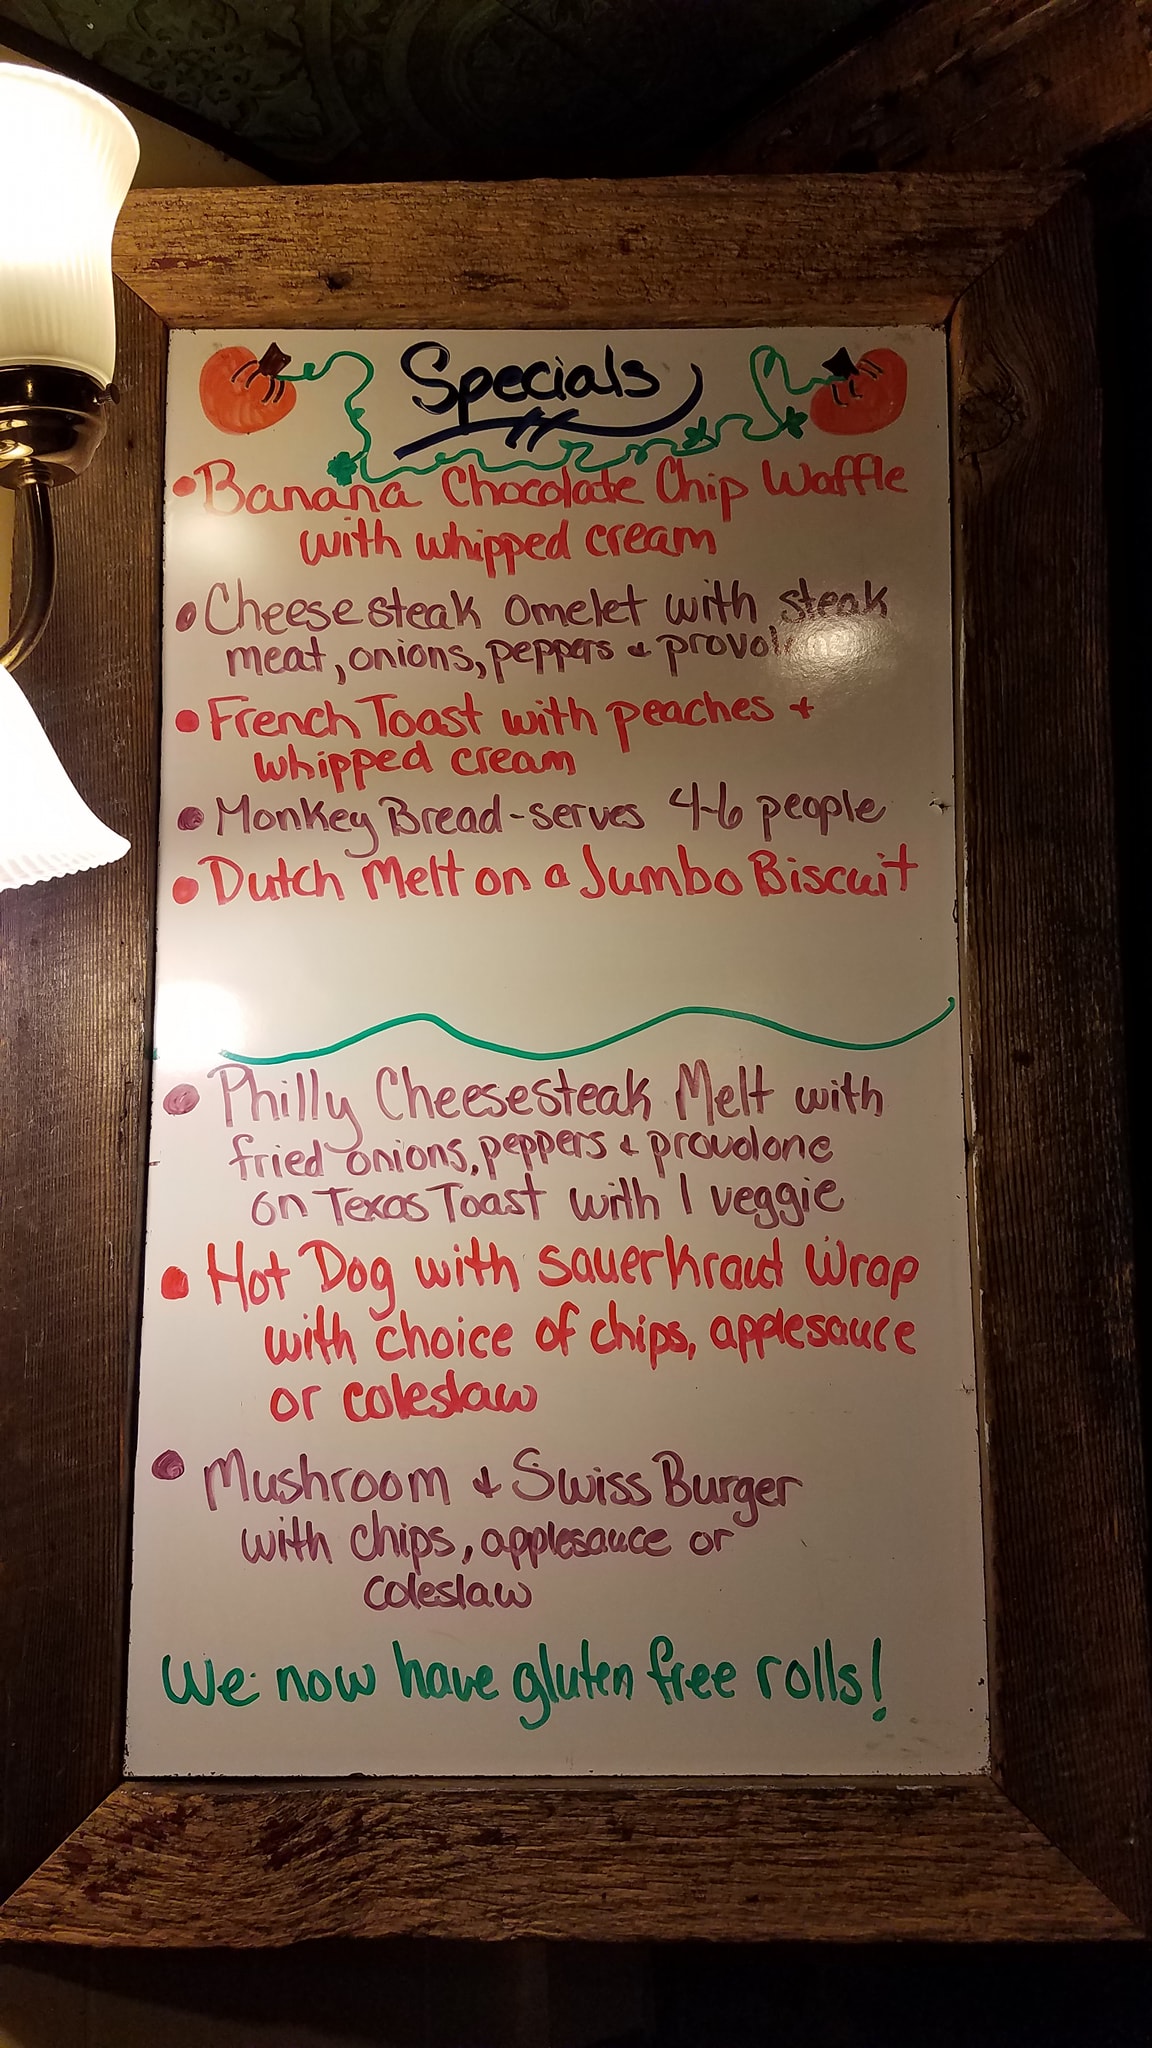 Specials
• Banana Chocolate Chip Waffle
with whipped cream
• Cheesesteak Omelet with steak
meat, onions, peppers & provolone
• French Toast with peaches +
whipped cream
• Monkey Bread - serves 4-6 people
• Dutch Melt on a Jumbo Biscuit
• Philly Cheesesteak Melt with
fried onions, peppers & provolone
on Texas Toast with 1 veggie
• Hot Dog with Sauerkraut Wrap
with choice of chips, applesauce
or coleslaw
• Mushroom & Swiss Burger
with chips, applesauce or
coleslaw
We now have gluten free rolls!